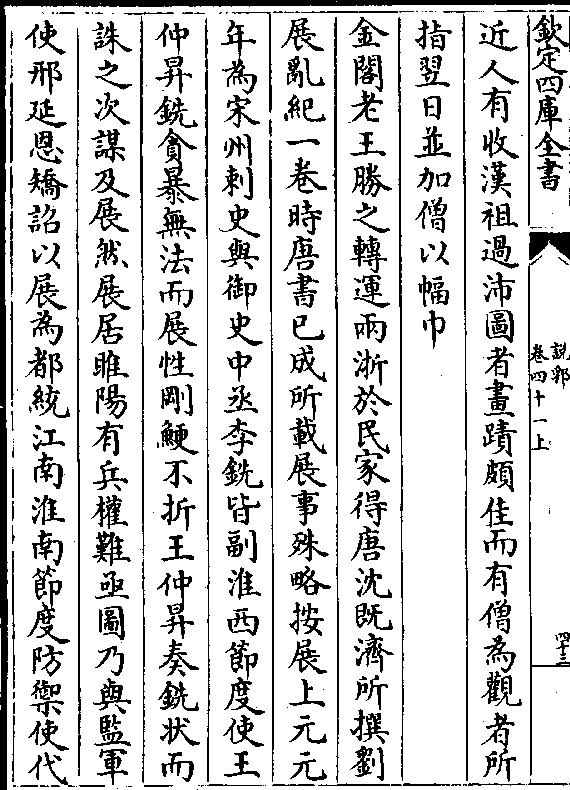 欽定四庫全書
說郛
卷四十一上
四十三
近人有收漢祖過沛圖者畫蹟頗佳而有僧為觀者所
指翌日並加僧以幅巾
金閣老王勝之轉運兩浙於民家得唐沈既濟所撰劉
展亂紀一卷時唐書已成所載展事殊略按展上元元
年為宋州刺史與御史中丞李銑皆副淮西節度使王
仲昇銑貪暴無法而展性剛鯁不折王仲昇奏銑状而
誅之次謀及展然展居睢陽有兵權難亟圖乃與監軍
使邢延恩矯詔以展為都統江南淮南節度防禦使代